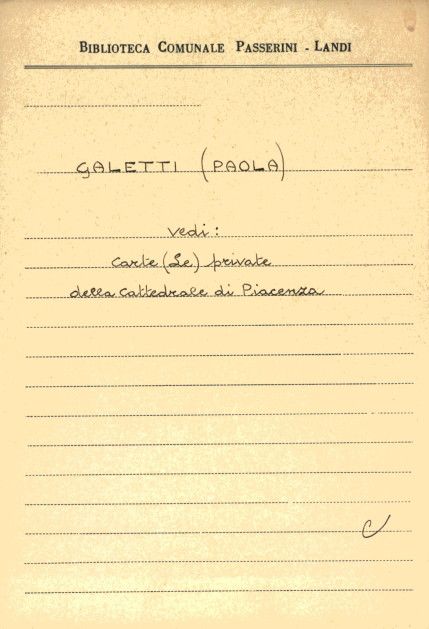 BIBLIOTECA COMUNALE PASSERINI - LANDI
GALETTI (PAOLA)
Vedi:
Carte (Le) private
della Cattedrale di Piacenza